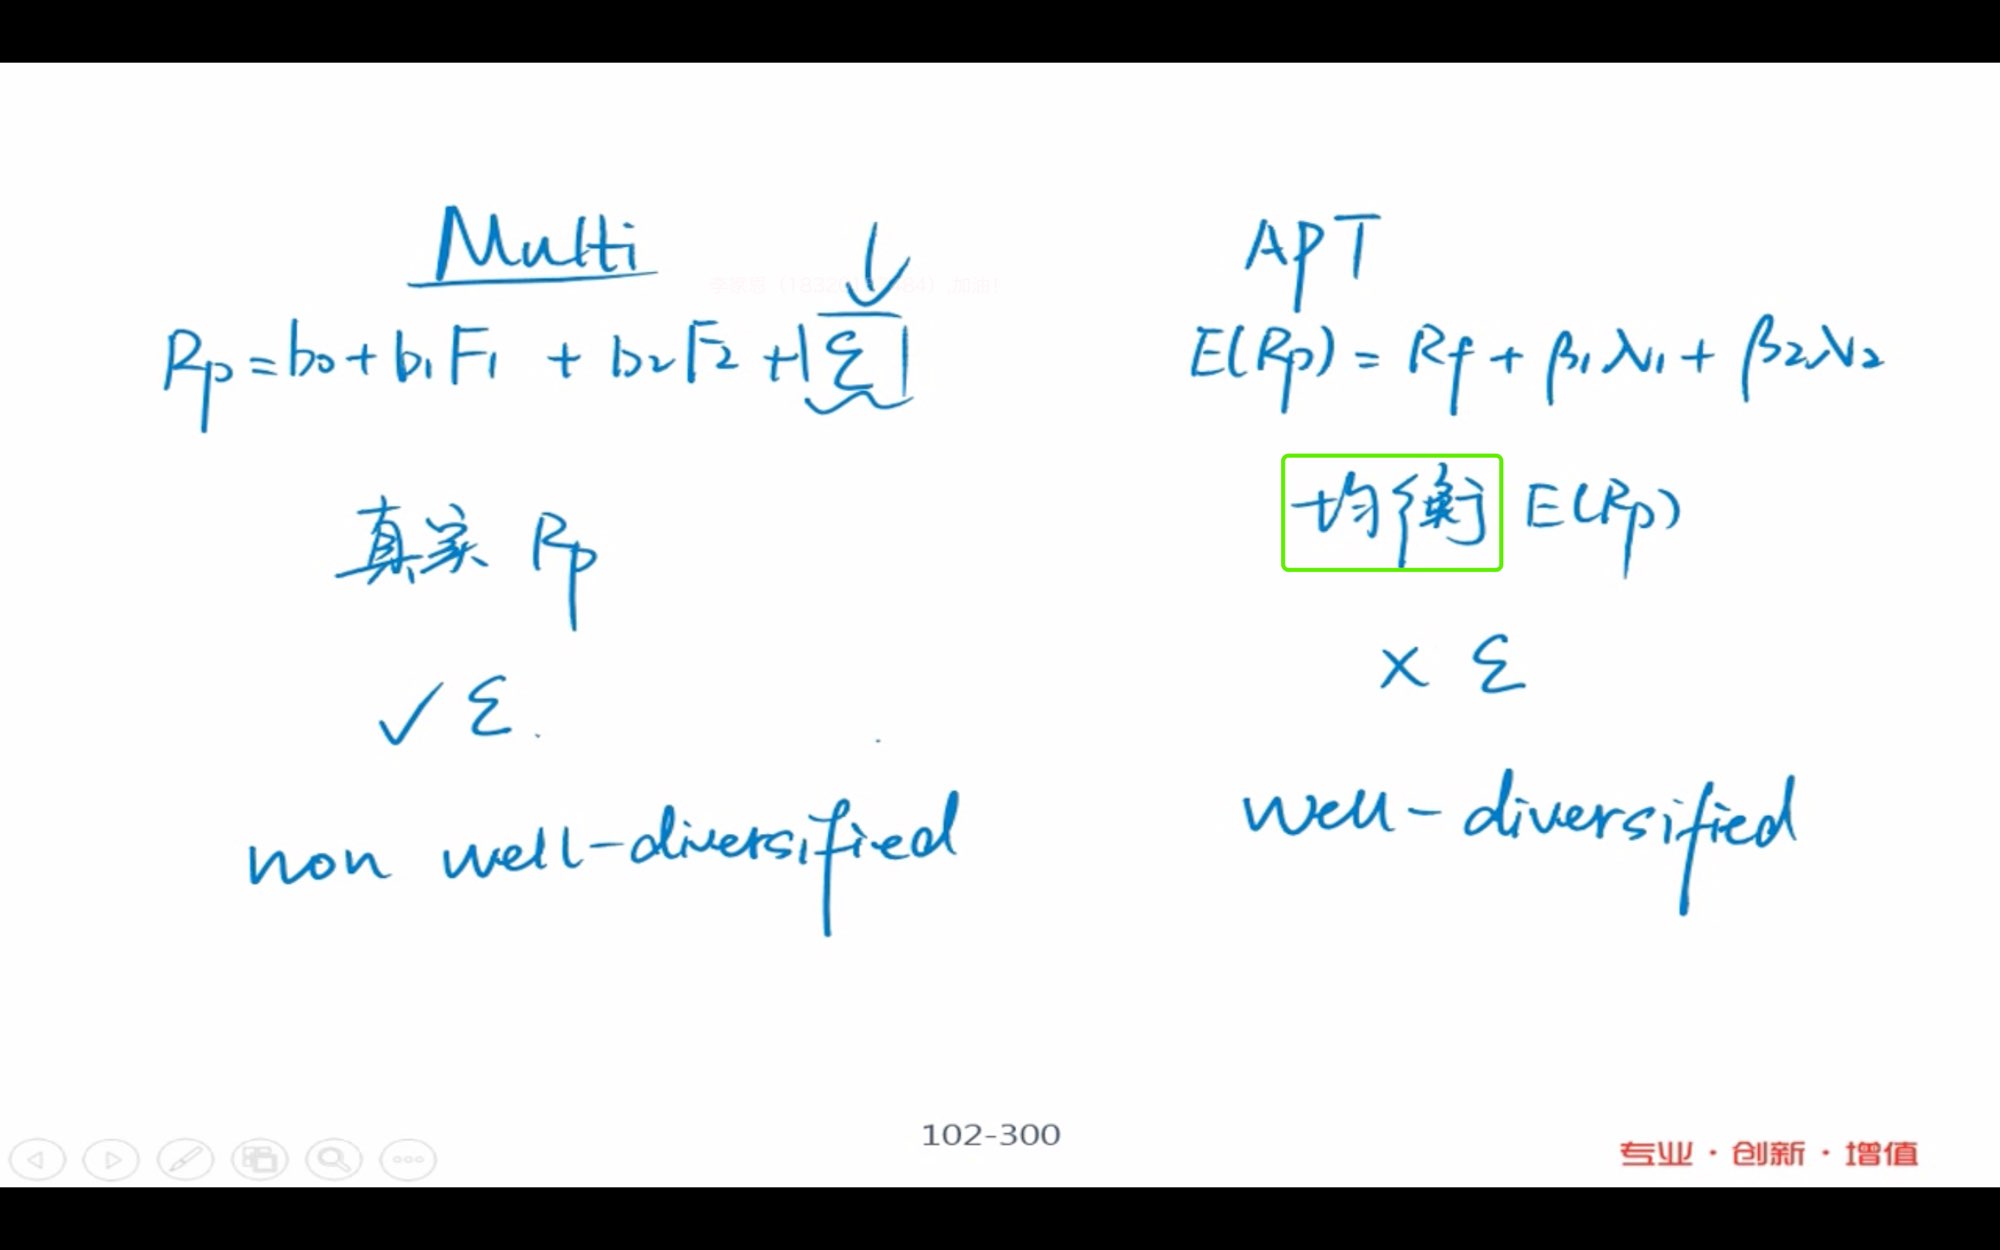 Multi
Rp = b0 + b1F1 + b2F2 + ε
真实 Rp
✓ ε
non well-diversified
APT
E(Rp) = Rf + β1λ1 + β2λ2
均衡 E(Rp)
× ε
well-diversified
102-300
专业·创新·增值